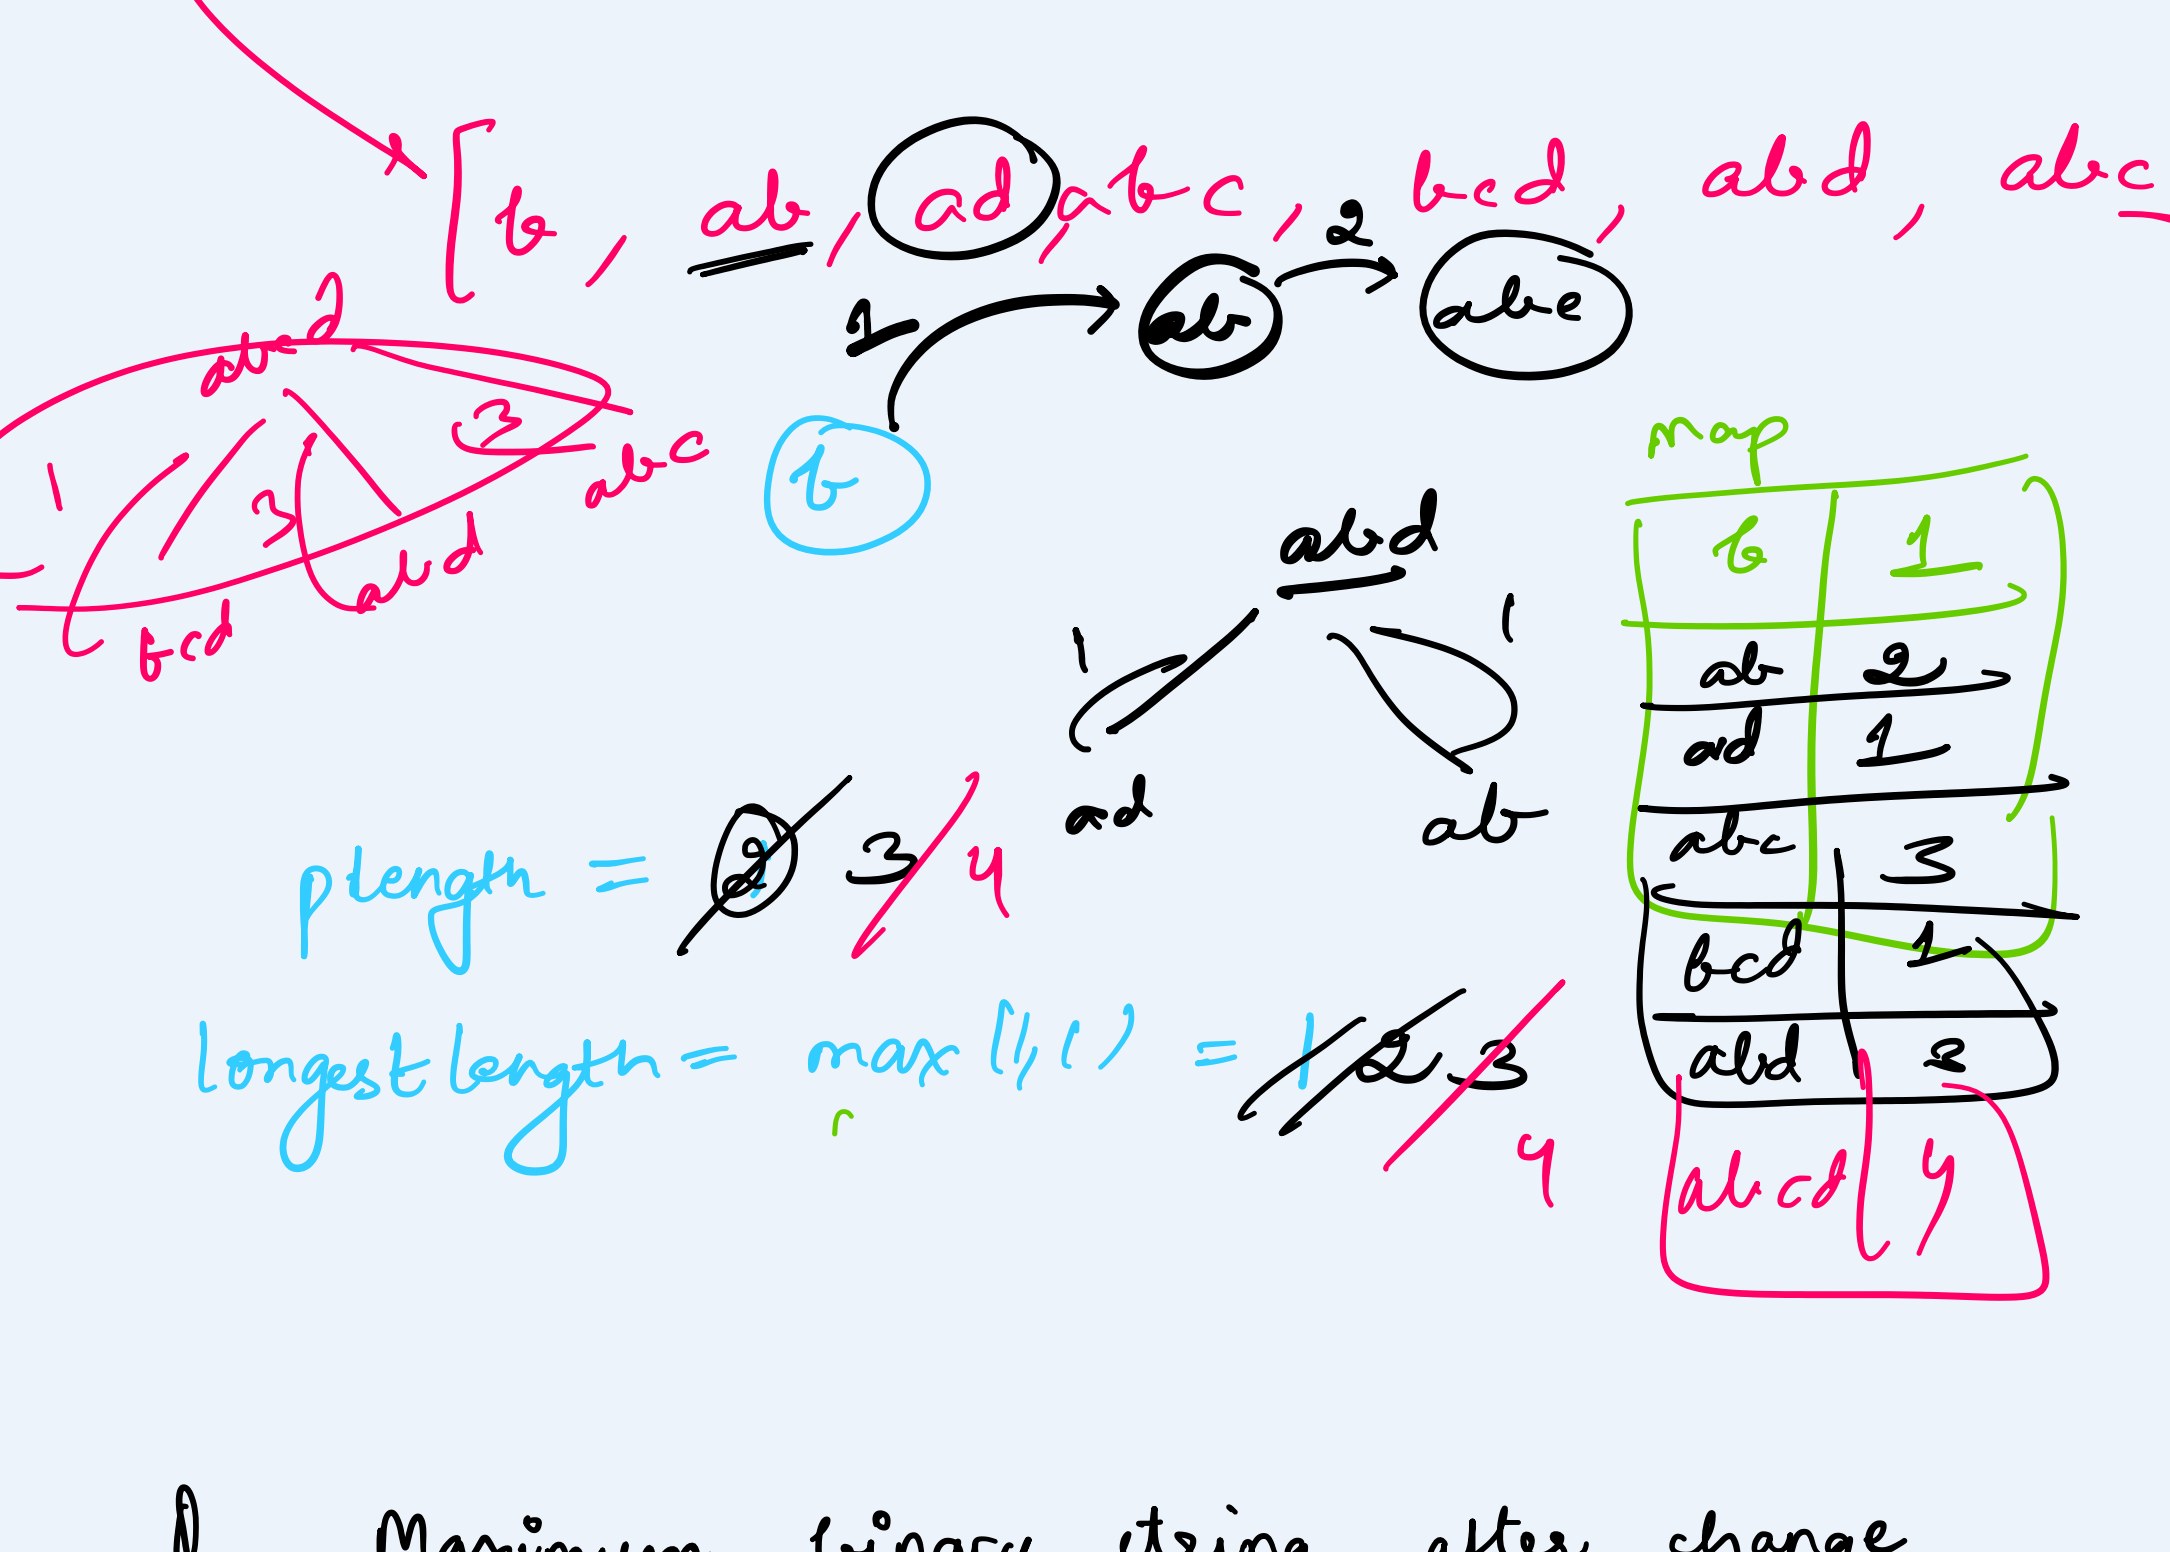 [ b , ab , ad , abc , bcd , abd , abc
2
1 ab abc
abcd
3 abc
b
1 3 abd
bcd
abd
1 1
ad ab
Map
b 1
ab 2
ad 1
abc 3
bcd 1
abd 3
abcd 4
plength = 2 3 4
longestlength = max(1,1) = 1 2 3
4
Maximum binary string after change